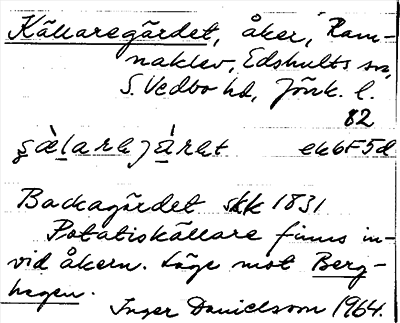 Källaregärdet, åker, Ram-
naklev, Edshults sn,
S. Vedbo hd, Jönk. l.
82
ek6F5d
Backagärdet skk 1831
Potatiskällare finns in-
vid åkern. Läge mot Berg-
hagen.
Inger Danielsson 1964.